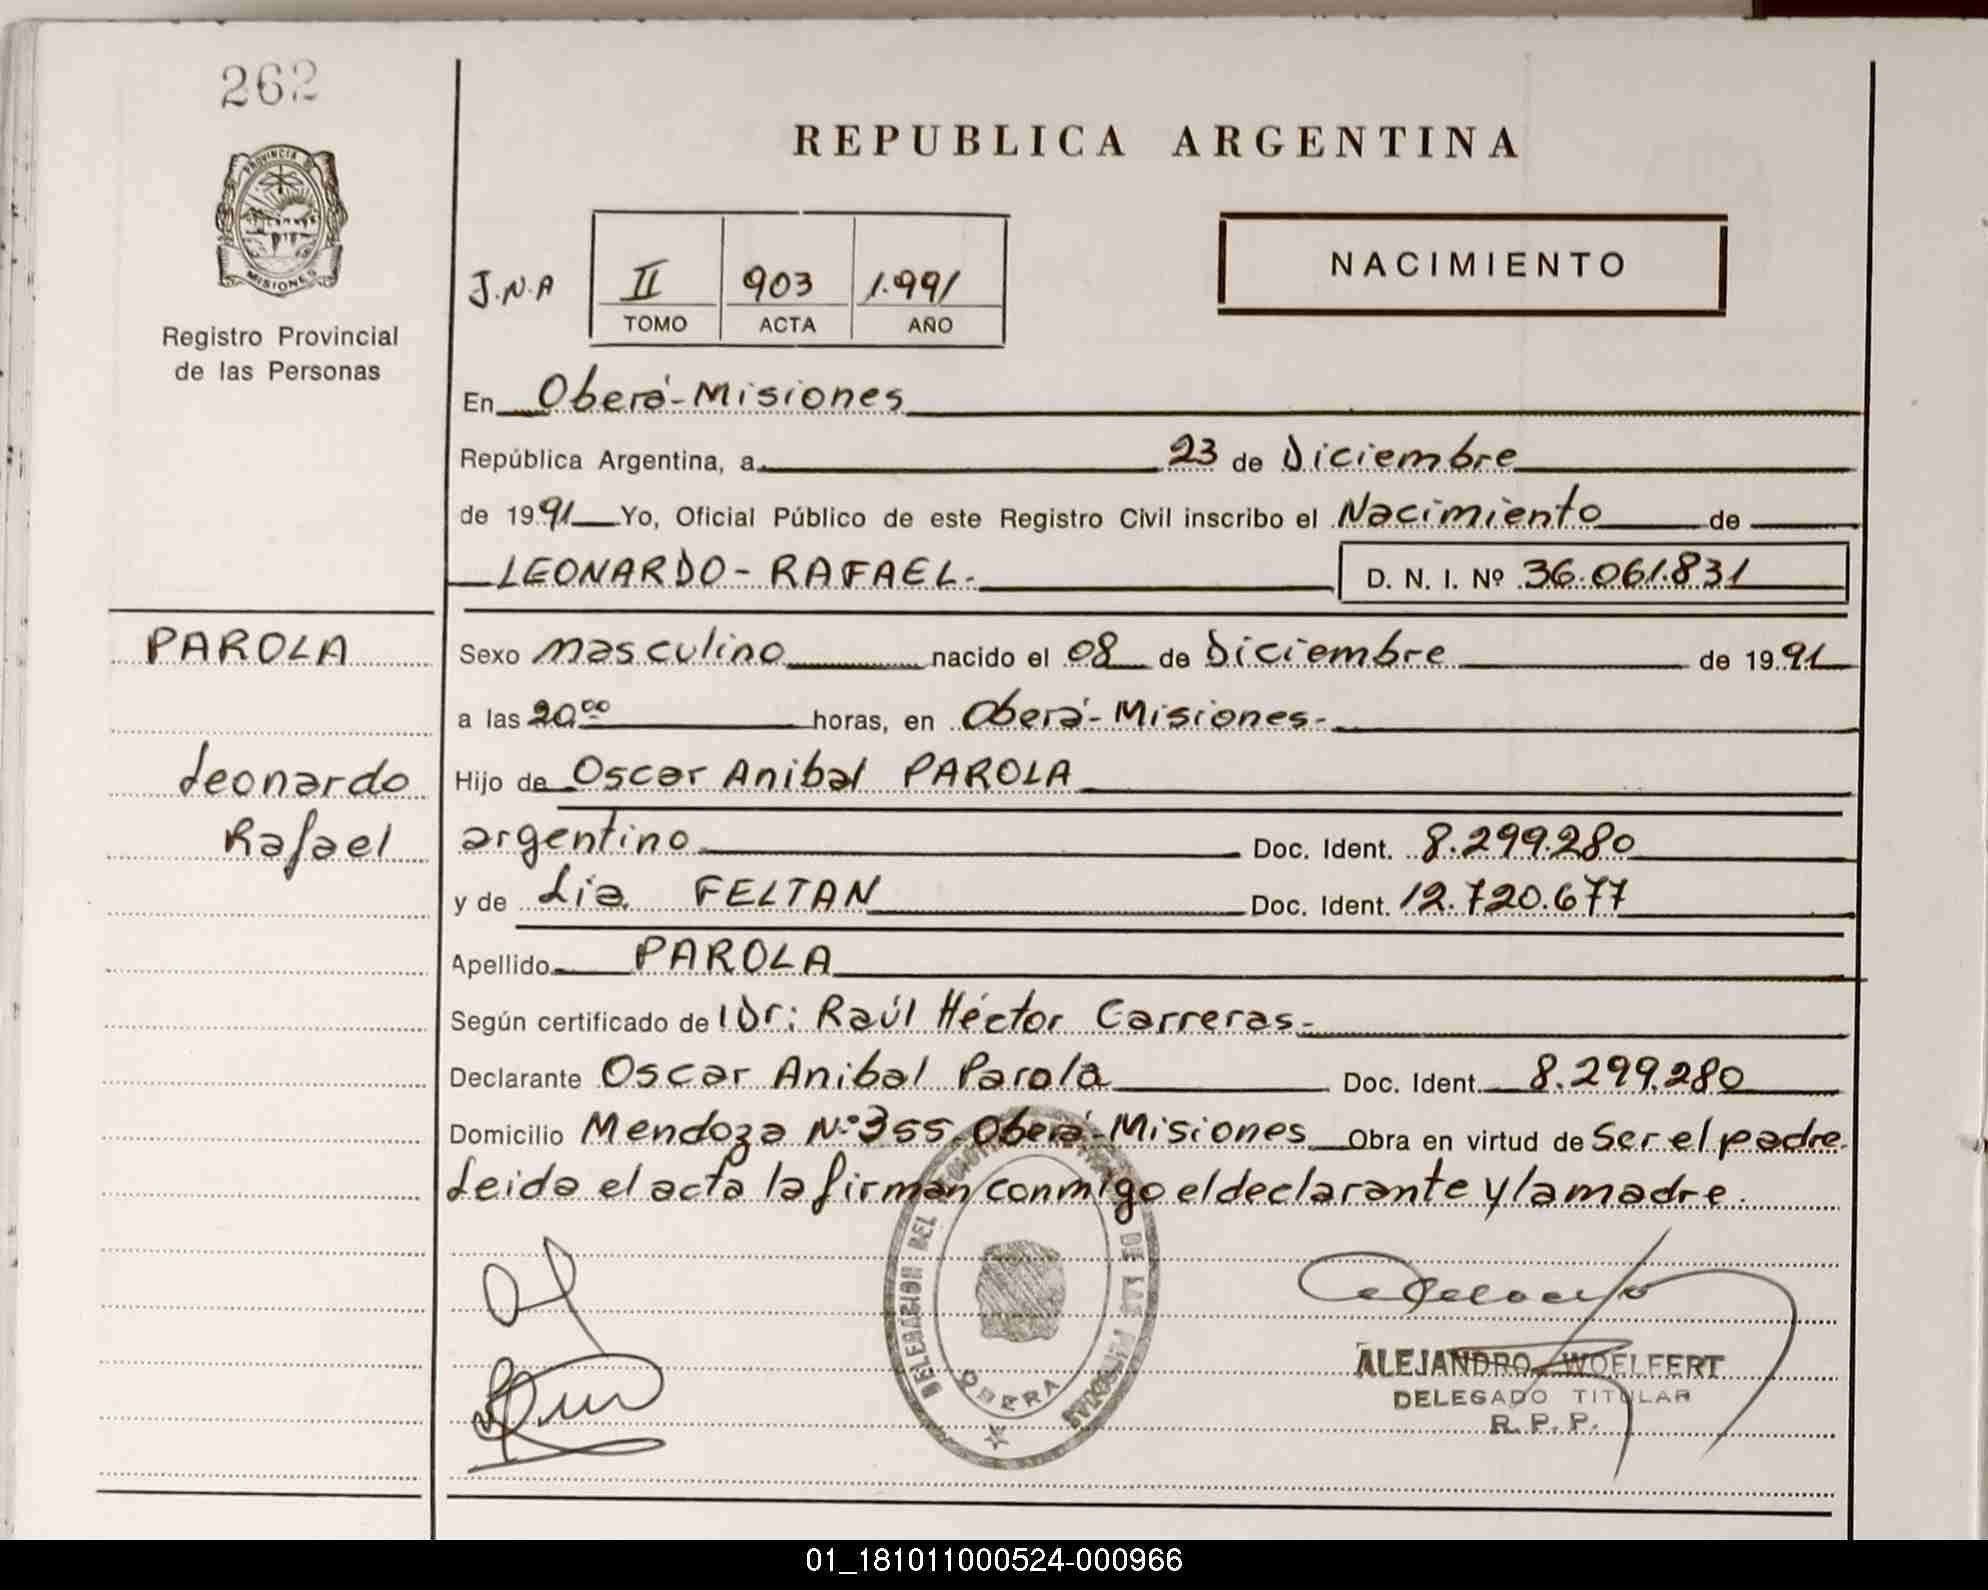 262
REPUBLICA ARGENTINA
PROVINCIA DE
MISIONES
Registro Provincial
de las Personas
J.N.A
II 903 1.991
TOMO ACTA AÑO
NACIMIENTO
En Oberá-Misiones
República Argentina, a 23 de Diciembre
de 1991 Yo, Oficial Público de este Registro Civil inscribo el Nacimiento de
LEONARDO - RAFAEL.- D. N. I. Nº 36.061.831
PAROLA
Leonardo
Rafael
Sexo masculino nacido el 08 de Diciembre de 1991
a las 20.00 horas, en Oberá-Misiones.-
Hijo de Oscar Anibal PAROLA
argentino Doc. Ident. 8.299.280
y de Lia FELTAN Doc. Ident. 12.720.677
Apellido PAROLA
Según certificado de l Dr: Raúl Héctor Carreras.-
Declarante Oscar Anibal Parola Doc. Ident. 8.299.280
Domicilio Mendoza Nº 355 Oberá-Misiones Obra en virtud de Ser el padre.
Leida el acta la firman conmigo el declarante y la madre.
DELEGACION DEL REGISTRO DE LAS PERSONAS
OBERA
ALEJANDRO WOELFERT
DELEGADO TITULAR
R. P. P.
01_181011000524-000966